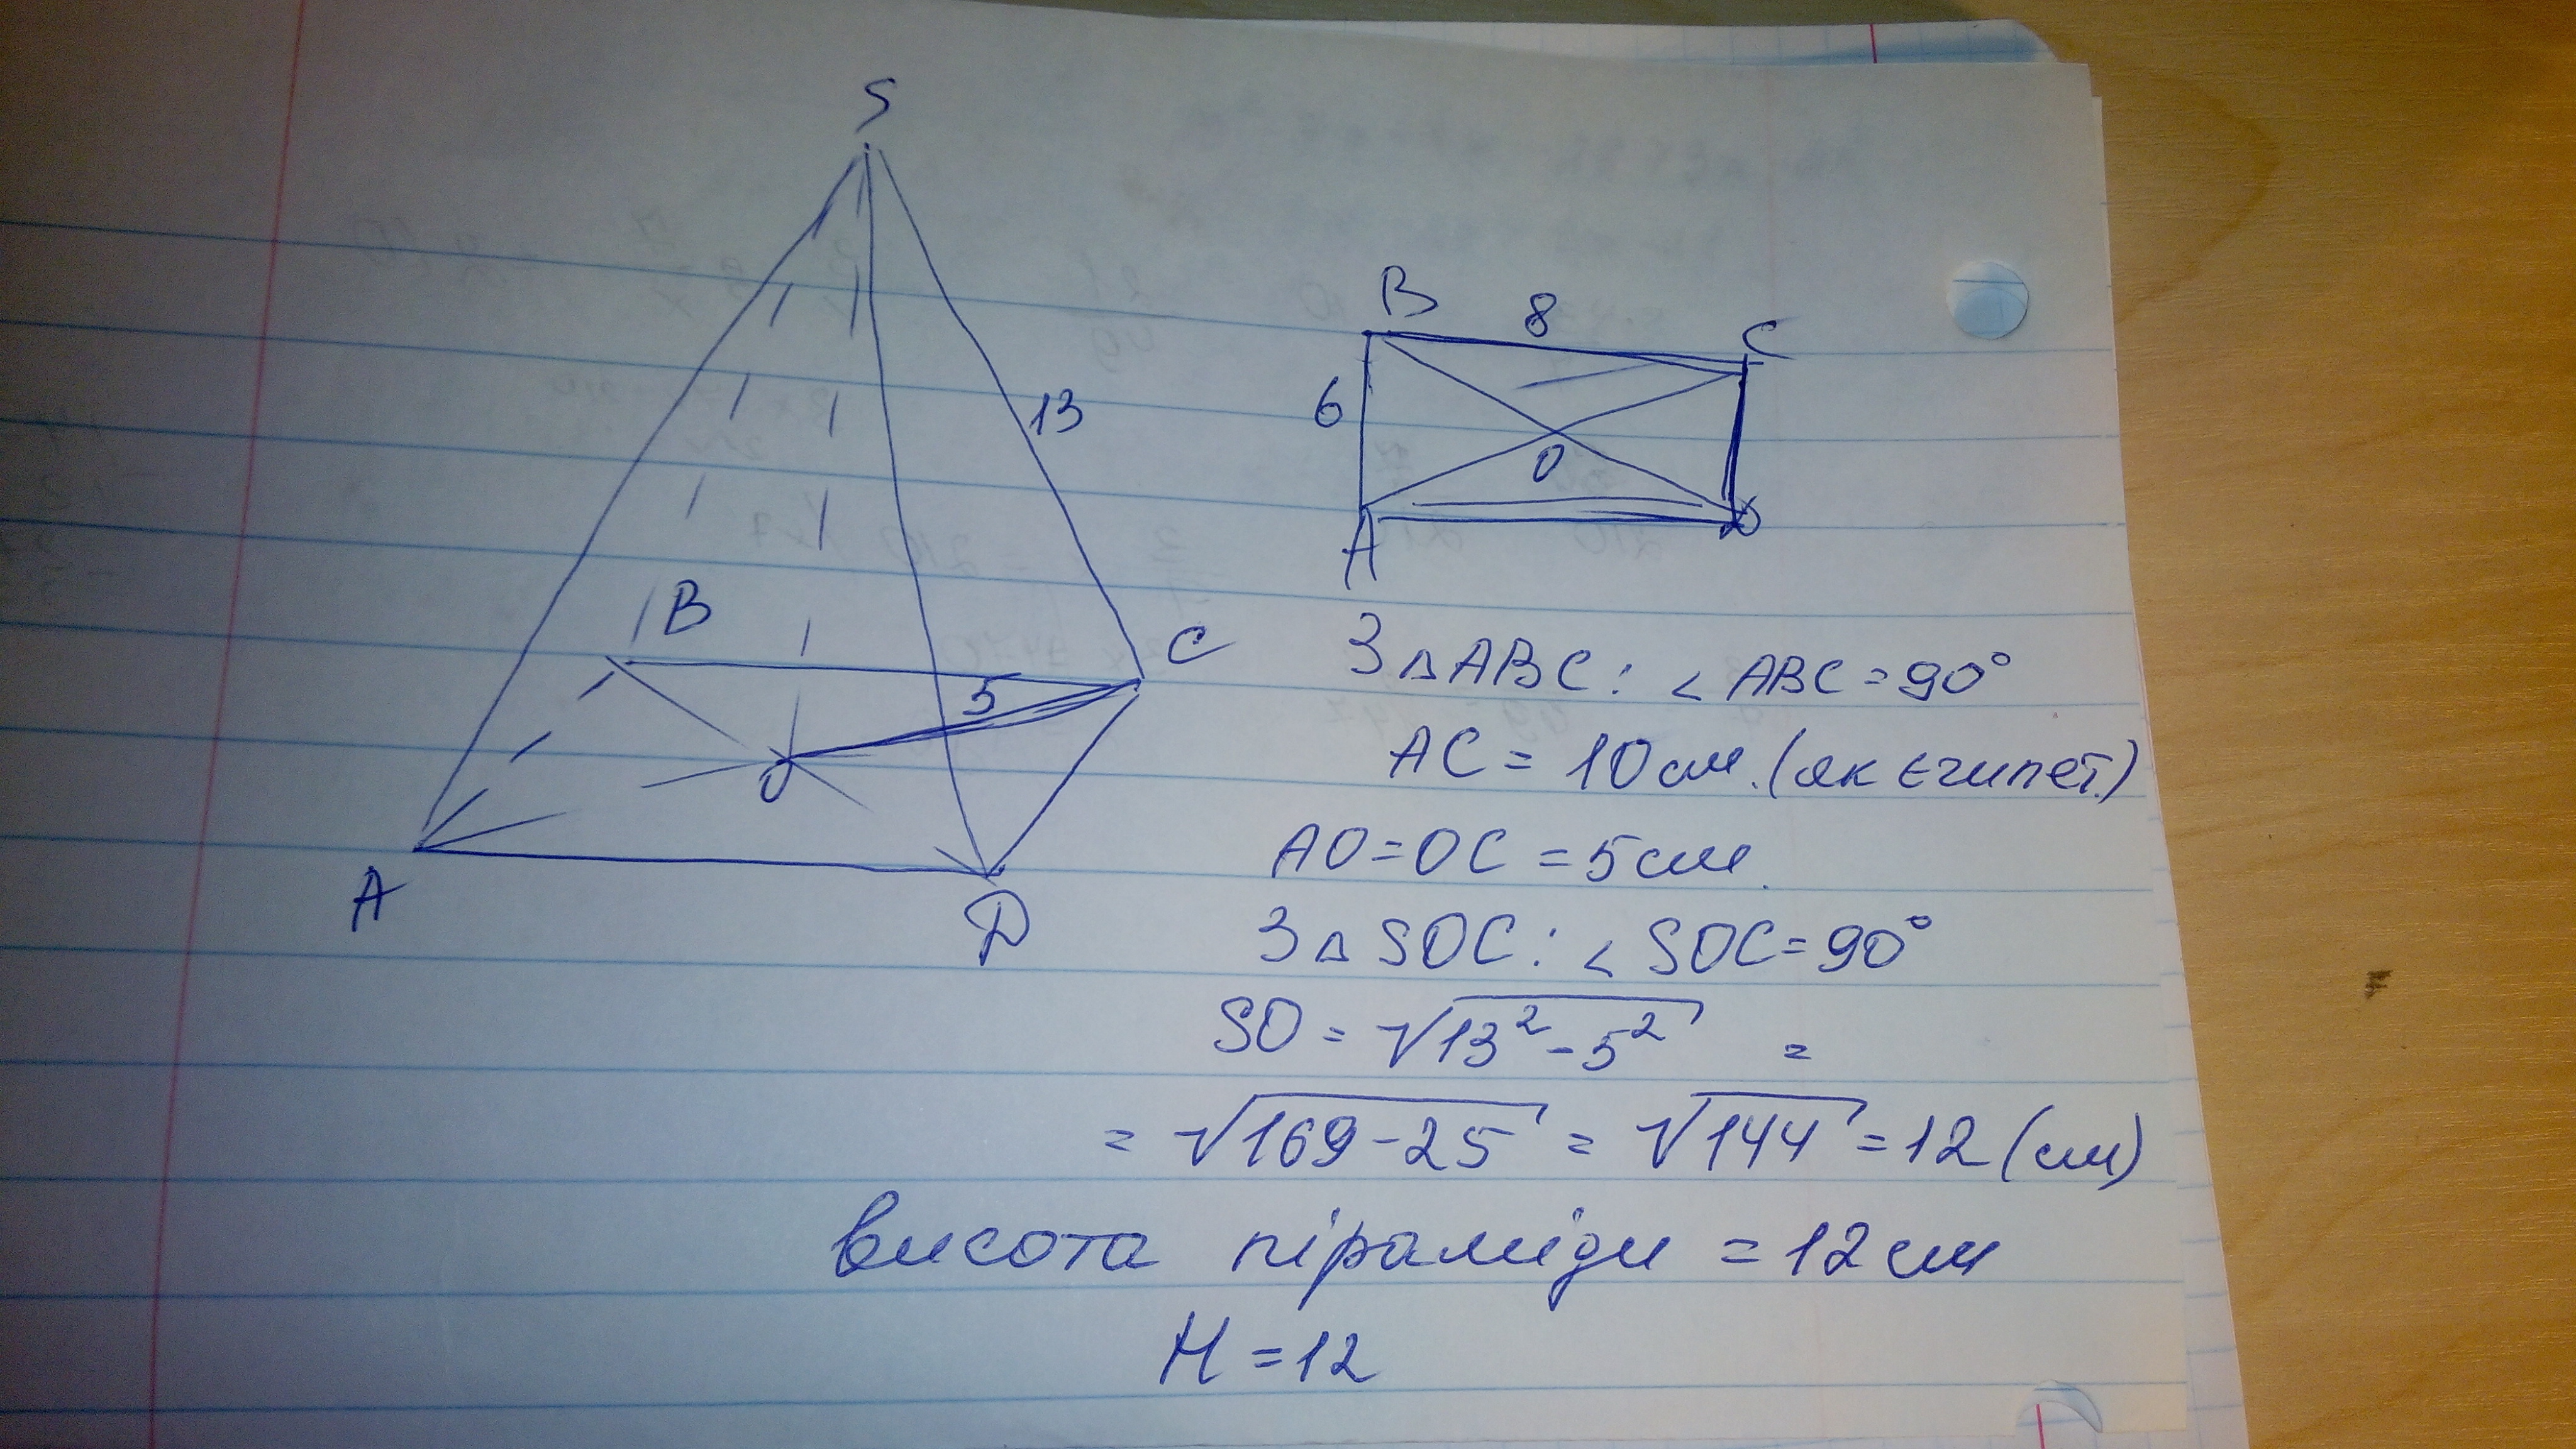 S
13
B
C
5
O
A
D
B 8 C
6
O
A D
З △ABC: ∠ABC = 90°
AC = 10 см. (як єгипет.)
AO = OC = 5 см.
З △SOC: ∠SOC = 90°
SO = √13² - 5² =
= √169 - 25 = √144 = 12 (см)
висота піраміди = 12 см
H = 12